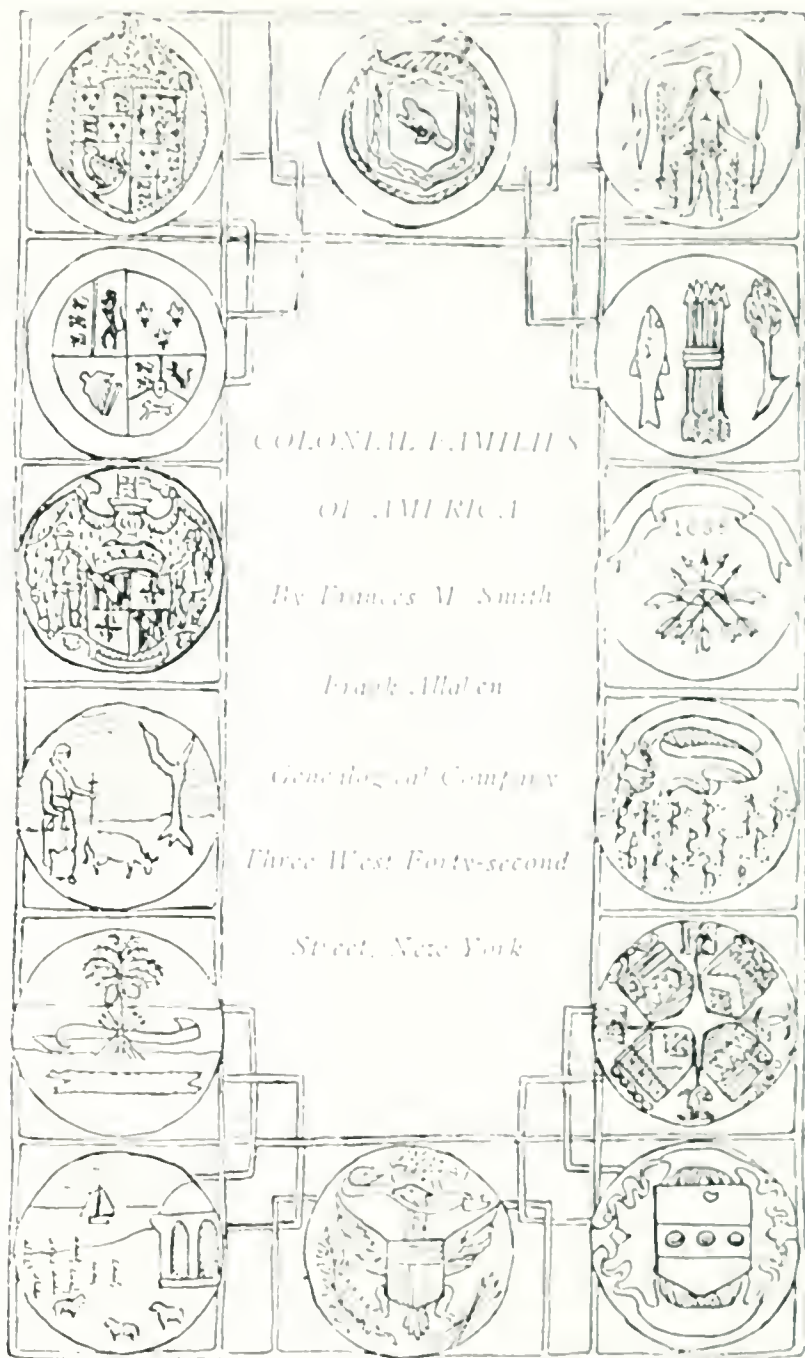 COLONIAL FAMILIES
OF AMERICA
By Frances M. Smith
Frank Allaben
Genealogical Company
Three West Forty-second
Street, New York